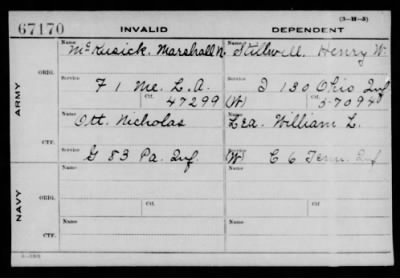 (3-H-3)
67170 INVALID DEPENDENT
Name Name
McKusick. Marshall N. Stillwell, Henry W.
ORIG. Service Service
F 1 Me. L. A. D 130 Ohio Inf
Ctf. Ctf.
47299 (W)
ARMY
Name Name
Ott. Nicholas Lea. William L.
CTF. Service Service
G 83 Pa. Inf. (W) C 6 Tenn. Inf
NAVY
Name Name
ORIG.
Ctf. Ctf.
Name Name
CTF.